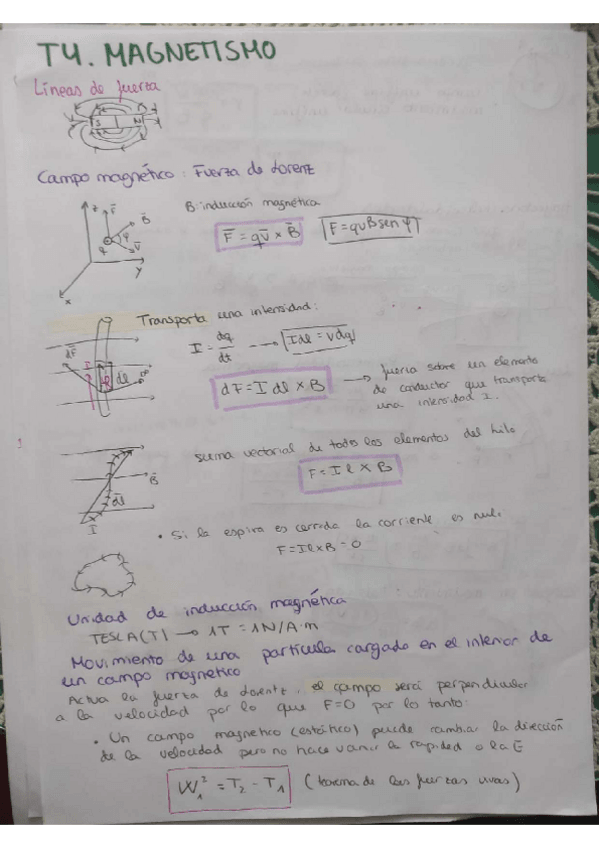 T4. MAGNETISMO
Líneas de fuerza
S N
Campo magnético: Fuerza de Lorentz
z F B φ q V y x
B: inducción magnética
F = qv × B F = qvB sen φ
Transporta una intensidad:
I = dq/dt → Idl = vdq
dF I dl B
dF = I dl × B → fuerza sobre un elemento
de conductor que transporta
una intensidad I.
suma vectorial de todos los elementos del hilo
F = I l × B
B dl I
• Si la espira es cerrada la corriente es nula
F = Il × B = 0
Unidad de inducción magnética
TESLA (T) → 1T = 1N/A·m
Movimiento de una partícula cargado en el interior de
un campo magnetico
Actua la fuerza de Lorentz, el campo será perpendicular
a la velocidad por lo que F=0 por lo tanto:
• Un campo magnetico (estático) puede cambiar la dirección
de la velocidad pero no hace variar la rapided o la E
W₁² = T₂ - T₁ (teorema de las fuerzas vivas)